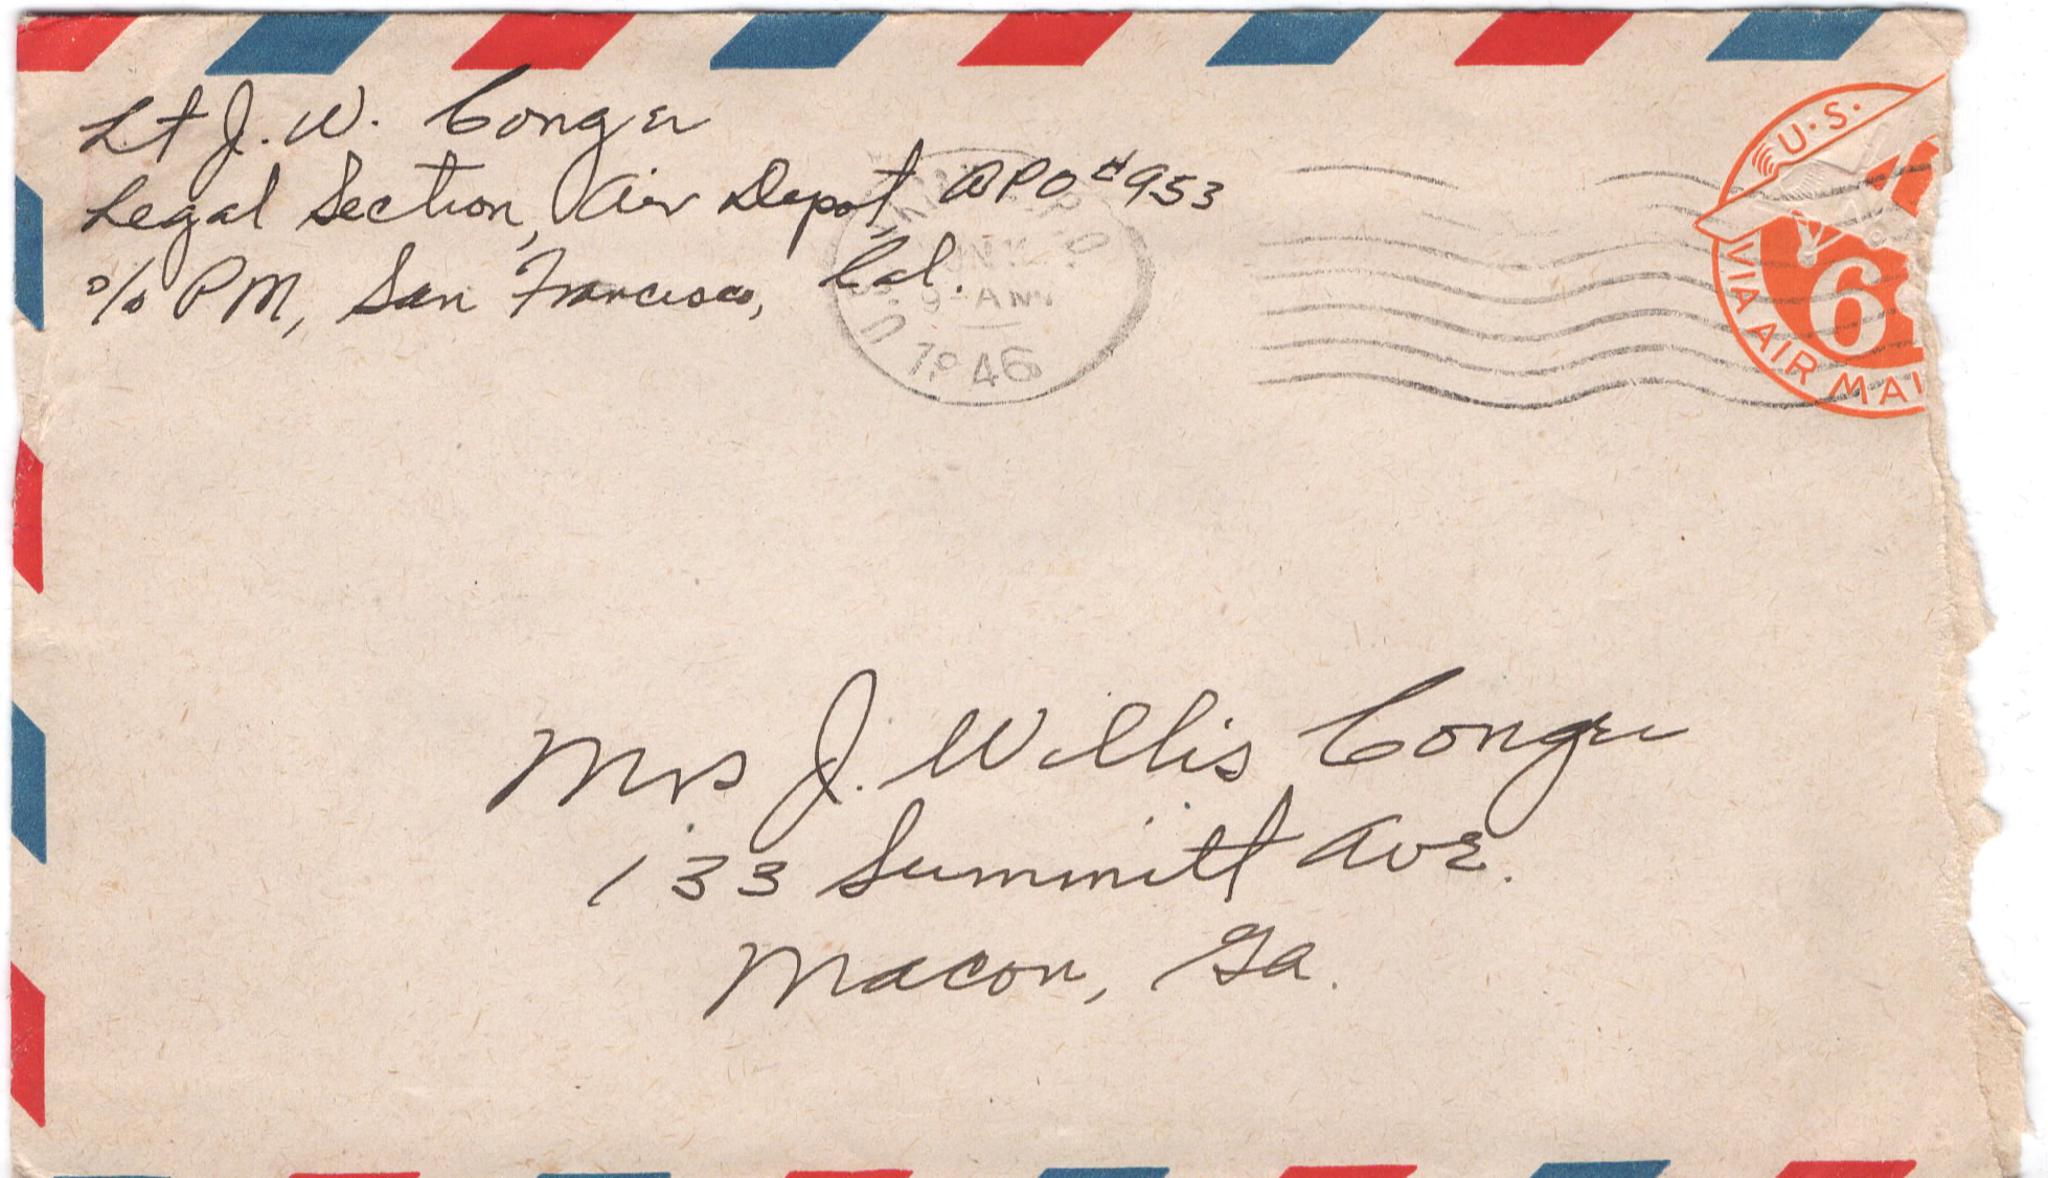 Lt J. W. Conger
Legal Section, Air Depot, APO #953
c/o PM, San Francisco, Cal.
9-AM
1946
U.S.
6
VIA AIR MAI
Mrs J. Willis Conger
133 Summitt Ave.
Macon, Ga.